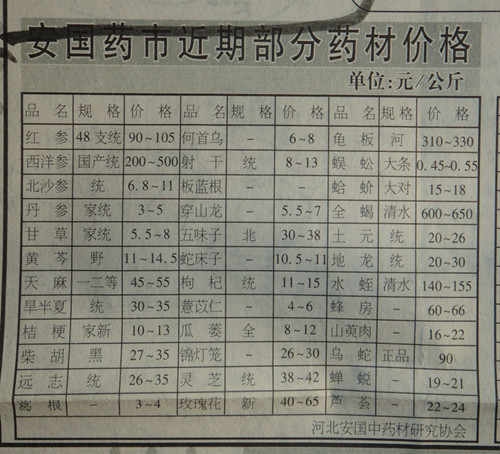 安国药市近期部分药材价格
单位:元/公斤
品名 规格 价格 品名 规格 价格 品名 规格 价格
红参 48支统 90-105 何首乌 - 6-8 龟板 河 310-330
西洋参 国产统 200-500 射干 统 8-13 蜈蚣 大条 0.45-0.55
北沙参 统 6.8-11 板蓝根 - 蛤蚧 大对 15-18
丹参 家统 3-5 穿山龙 - 5.5-7 全蝎 清水 600-650
甘草 家统 5.5-8 五味子 北 30-38 土元 统 20-26
黄芩 野 11-14.5 蛇床子 - 10.5-11 地龙 统 20-30
天麻 一二等 45-55 枸杞 统 11-15 水蛭 清水 140-155
旱半夏 统 30-35 薏苡仁 - 4-6 蜂房 - 60-66
桔梗 家新 10-13 瓜蒌 全 8-12 山萸肉 - 16-22
柴胡 黑 27-35 锦灯笼 - 26-30 乌蛇 正品 90
远志 统 26-35 灵芝 统 38-42 蝉蜕 - 19-21
葛根 - 3-4 玫瑰花 新 40-65 芦荟 - 22-24
河北安国中药材研究协会